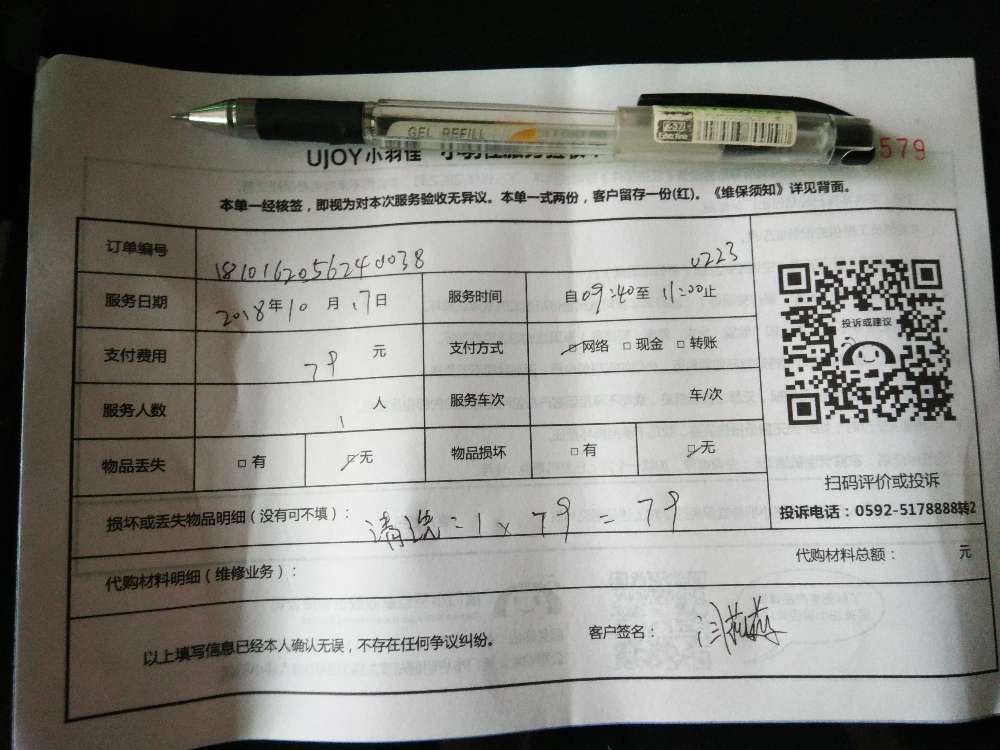 GEL REFILL
579
UJOY小羽佳
本单一经核签，即视为对本次服务验收无异议。本单一式两份，客户留存一份(红)。《维保须知》详见背面。
订单编号 1810162056240038 0223
服务日期 2018年10月17日 服务时间 自09:40至11:00止
支付费用 79 元 支付方式 □网络 □现金 □转账
服务人数 1 人 服务车次 车/次
物品丢失 □有 □无 物品损坏 □有 □无
投诉或建议
扫码评价或投诉
投诉电话：0592-5178888转2
损坏或丢失物品明细（没有可不填）： 清洗=1×79=79
代购材料明细（维修业务）： 代购材料总额： 元
以上填写信息已经本人确认无误，不存在任何争议纠纷。 客户签名：